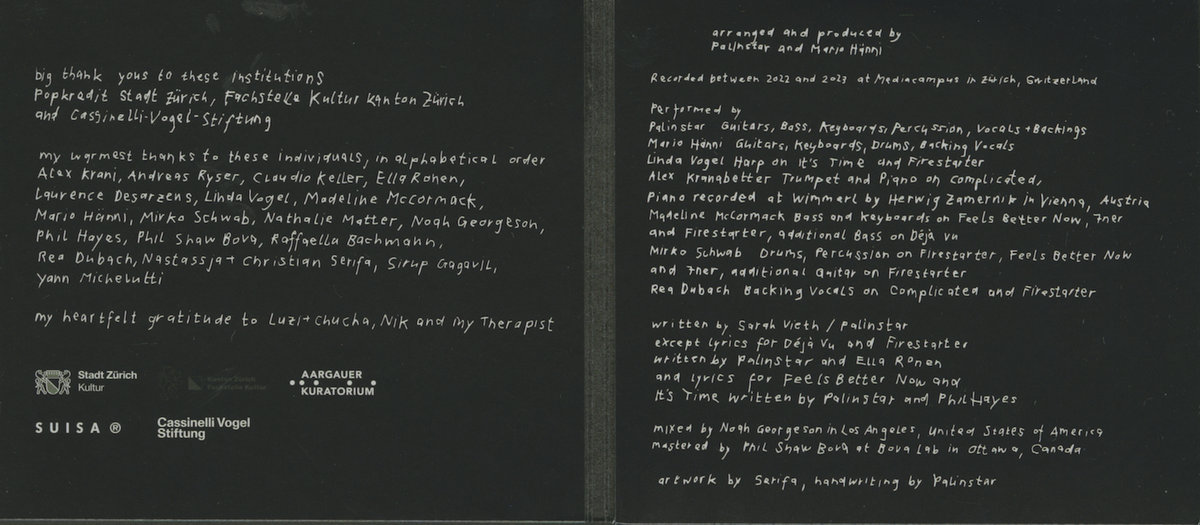 big thank yous to these institutions
Popkredit Stadt Zürich, Fachstelle Kultur Kanton Zürich
and Cassinelli-Vogel-Stiftung
my warmest thanks to these individuals, in alphabetical order
Alex Krani, Andreas Ryser, Claudio Keller, Ella Ronen,
Laurence Desarzens, Linda Vogel, Madeline McCormack,
Mario Hänni, Mirko Schwab, Nathalie Matter, Noah Georgeson,
Phil Hayes, Phil Shaw Bova, Raffaella Bachmann,
Rea Dubach, Nastassja + Christian Serifa, Sirup Gagavil,
Yann Michelutti
my heartfelt gratitude to Luzi + Chucha, Nik and my Therapist
Stadt Zürich
Kultur
Kanton Zürich
Fachstelle Kultur
AARGAUER
KURATORIUM
SUISA ®
Cassinelli Vogel
Stiftung
arranged and produced by
Palinstar and Mario Hänni
Recorded between 2022 and 2023 at Mediacampus in Zürich, Switzerland
Performed by
Palinstar Guitars, Bass, Keyboards, Percussion, Vocals + Backings
Mario Hänni Guitars, Keyboards, Drums, Backing Vocals
Linda Vogel Harp on It's Time and Firestarter
Alex Kranabetter Trumpet and Piano on Complicated,
Piano recorded at Wimmerl by Herwig Zamernik in Vienna, Austria
Madeline McCormack Bass and Keyboards on Feels Better Now, 7ner
and Firestarter, additional Bass on Déjà vu
Mirko Schwab Drums, Percussion on Firestarter, Feels Better Now
and 7ner, additional Guitar on Firestarter
Rea Dubach Backing Vocals on Complicated and Firestarter
written by Sarah Vieth / Palinstar
except lyrics for Déjà Vu and Firestarter
written by Palinstar and Ella Ronen
and lyrics for Feels Better Now and
It's Time written by Palinstar and Phil Hayes
mixed by Noah Georgeson in Los Angeles, United States of America
mastered by Phil Shaw Bova at Bova Lab in Ottawa, Canada
artwork by Serifa, handwriting by Palinstar